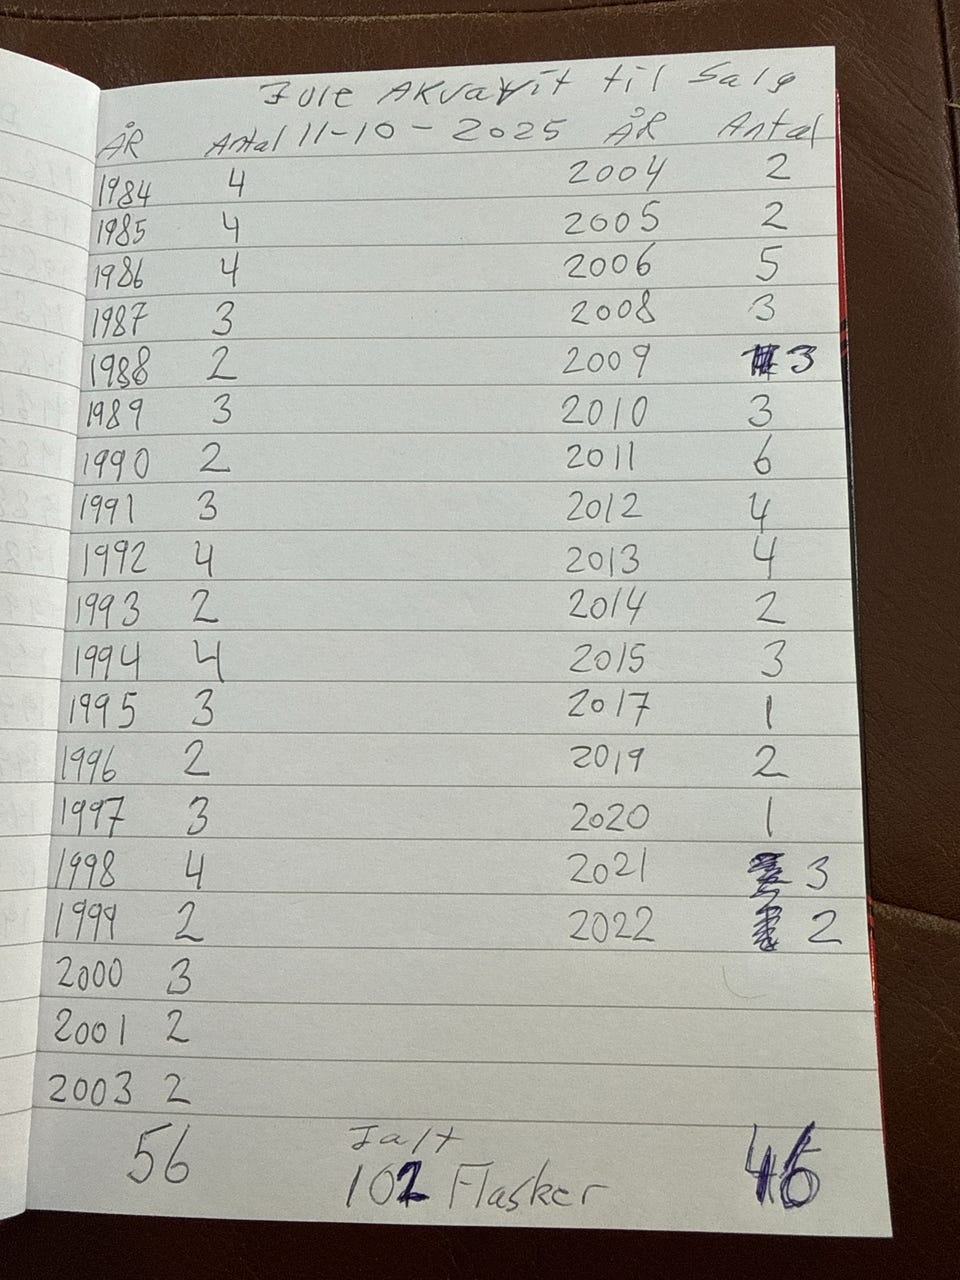 Jule Akvavit til Salg
ÅR Antal 11-10-2025 ÅR Antal
1984 4 2004 2
1985 4 2005 2
1986 4 2006 5
1987 3 2008 3
1988 2 2009 3
1989 3 2010 3
1990 2 2011 6
1991 3 2012 4
1992 4 2013 4
1993 2 2014 2
1994 4 2015 3
1995 3 2017 1
1996 2 2019 2
1997 3 2020 1
1998 4 2021 3
1999 2 2022 2
2000 3
2001 2
2003 2
56 Ialt 46
102 Flasker